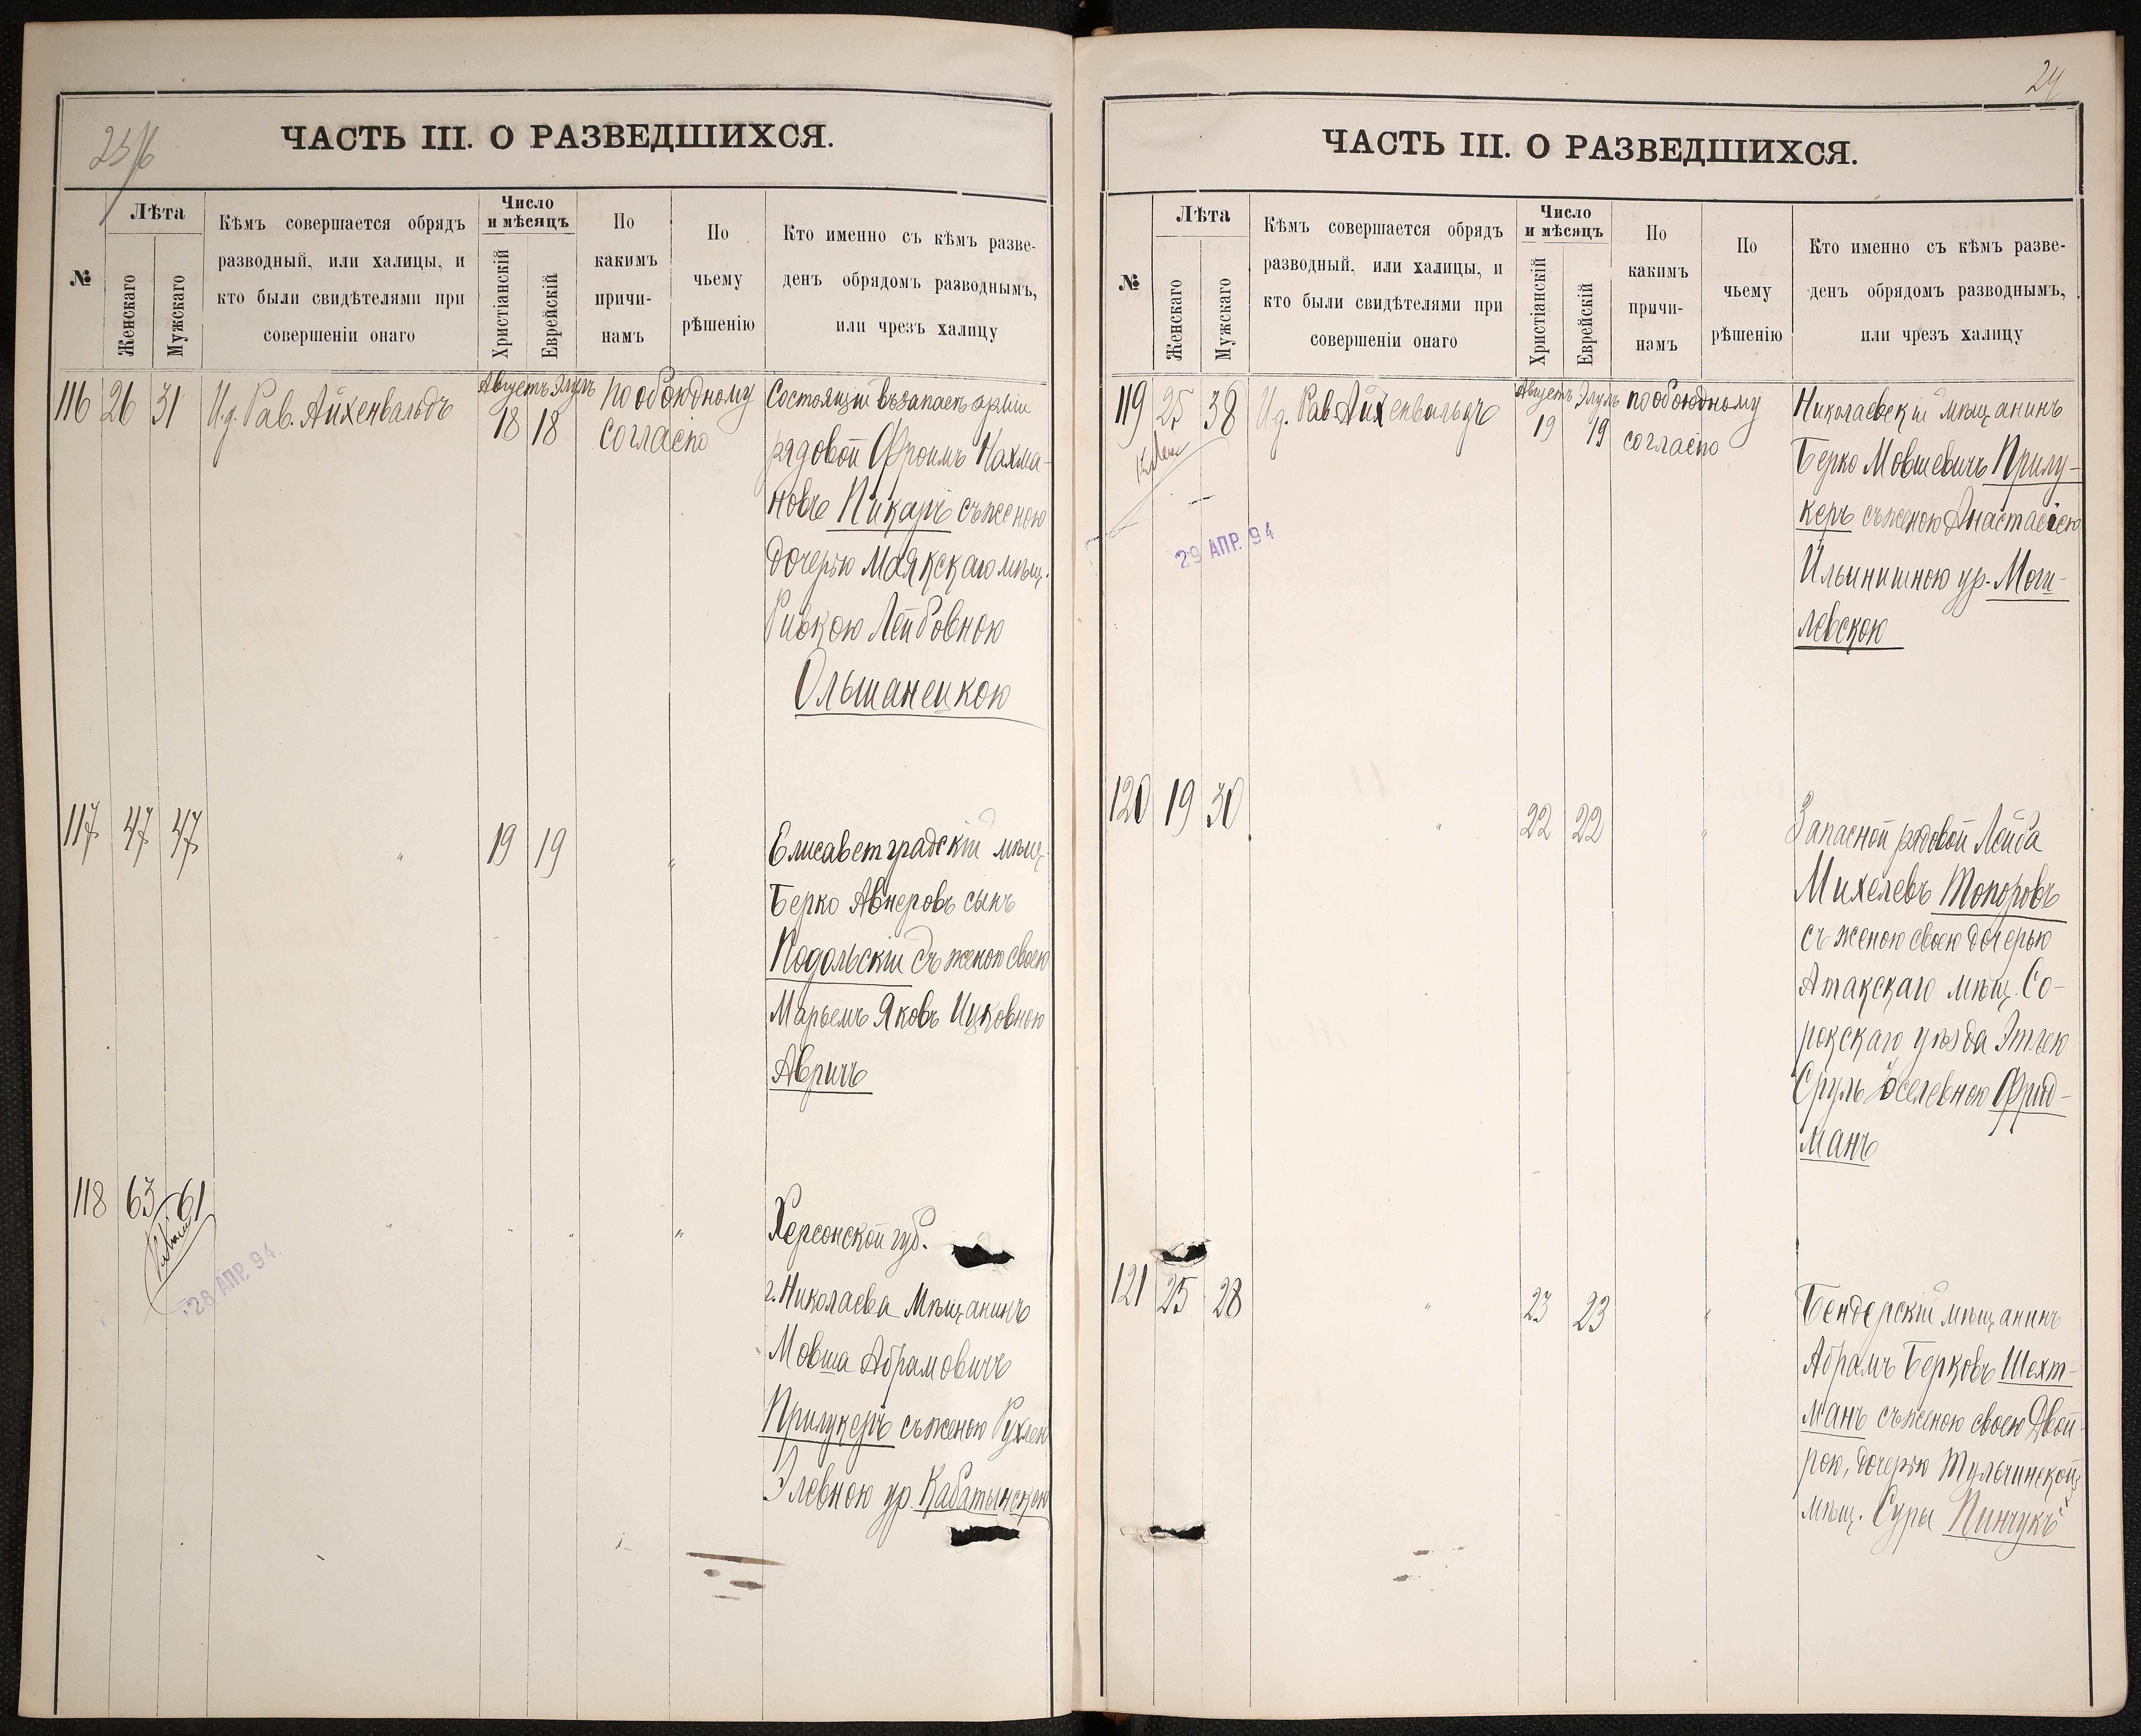 ЧАСТЬ III. О РАЗВЕДШИХСЯ.
№
Лѣта
Женскаго
Мужскаго
Кѣмъ совершается обрядъ
разводный, или халицы, и
кто были свидѣтелями при
совершеніи онаго
Число
и мѣсяцъ
Христіанскій
Еврейскій
По
какимъ
причи-
намъ
По
чьему
рѣшенію
Кто именно съ кѣмъ разве-
денъ обрядомъ разводнымъ,
или чрезъ халицу
116 26 31 И.д. Рав. Айхенвальдъ Августъ Элулъ 18 18 по обоюдному
согласію
Состоящій въ запасѣ арміи
рядовой Фроимъ Нахма-
новъ Пикаръ съ женою
дочерью Маякскаго мѣщ.
Ривкою Лейбовною
Ольшанецкою
117 47 47 " 19 19 "
Елисаветградскій мѣщ.
Берко Авнеровъ сынъ
Подольскій съ женою своею
Марьемъ Яковъ Ицковною
Авричъ
118 63 61 " " " "
28 АПР. 94.
Херсонской губ.
г. Николаева Мѣщанинъ
Мовша Абрамовичъ
Прилукеръ съ женою Рухлею
Элевною ур. Кабатынскою
24
ЧАСТЬ III. О РАЗВЕДШИХСЯ.
№
Лѣта
Женскаго
Мужскаго
Кѣмъ совершается обрядъ
разводный, или халицы, и
кто были свидѣтелями при
совершеніи онаго
Число
и мѣсяцъ
Христіанскій
Еврейскій
По
какимъ
причи-
намъ
По
чьему
рѣшенію
Кто именно съ кѣмъ разве-
денъ обрядомъ разводнымъ,
или чрезъ халицу
119 25 38 И.д. Рав. Айхенвальдъ Августъ Элулъ 19 19 по обоюдному
согласію
29 АПР. 94
Николаевскій мѣщанинъ
Берко Мовшевичъ Прилу-
керъ съ женою Анастасіею
Ильинишною ур. Моги-
левскою
120 19 30 " 22 22 "
Запасной рядовой Лейба
Михелевъ Топоровъ
съ женою своею дочерью
Атакскаго мѣщ. Со-
рокскаго уѣзда Этлею
Сруль Іоселевною Фрид-
манъ
121 25 28 " 23 23 "
Бендерскій мѣщанинъ
Абрамъ Берковъ Шехт-
манъ съ женою своею Двой-
рою, дочерью Тульчинской
мѣщ. Суры Пинчукъ